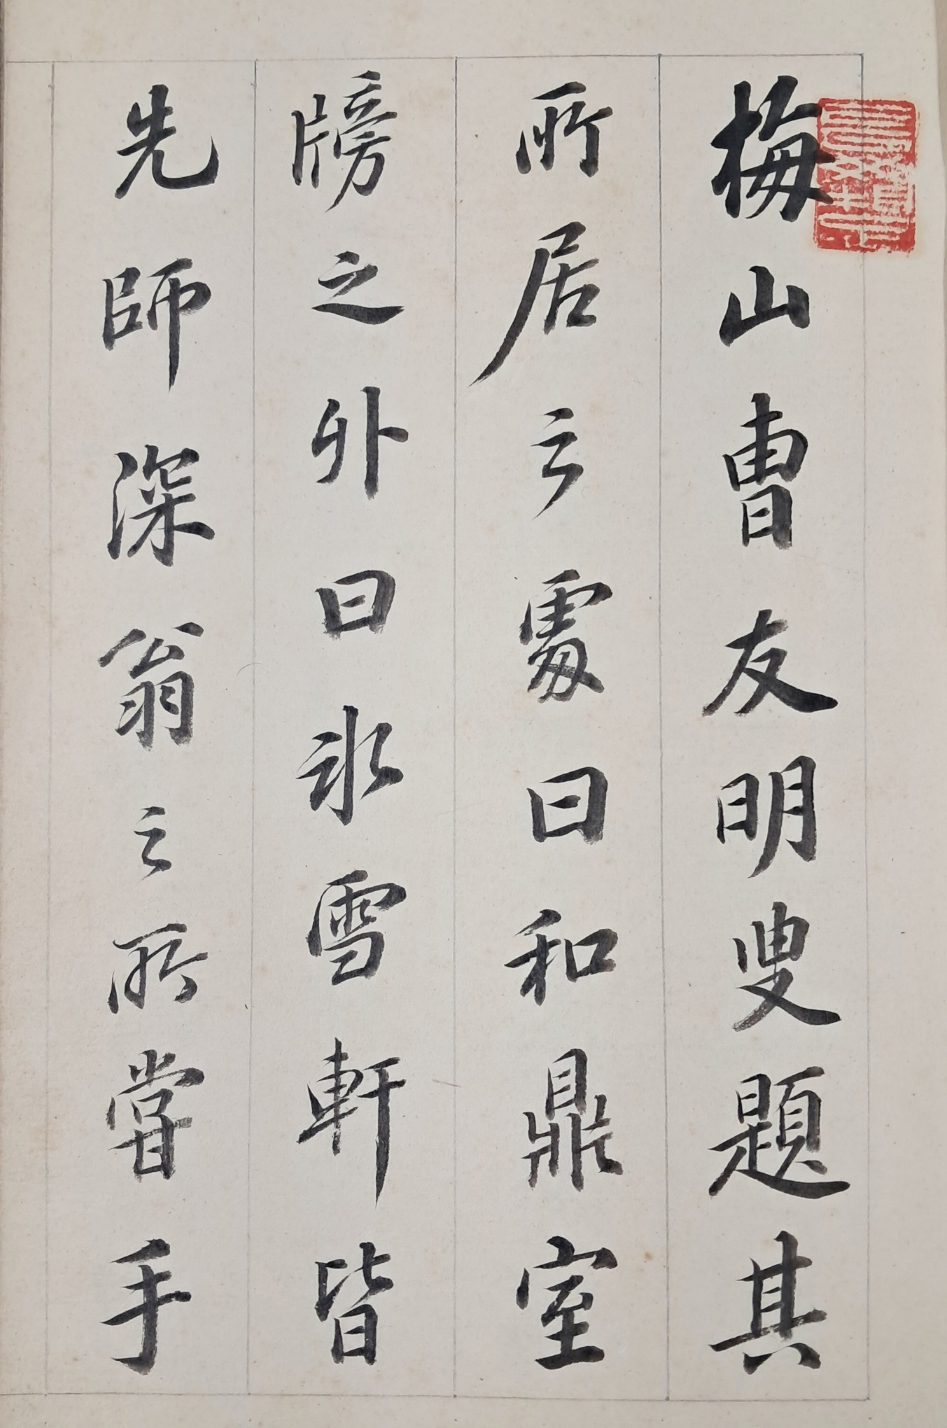 梅山曹友明叟題其
所居之處曰和鼎室
牓之外曰氷雪軒皆
先師深翁之所甞手